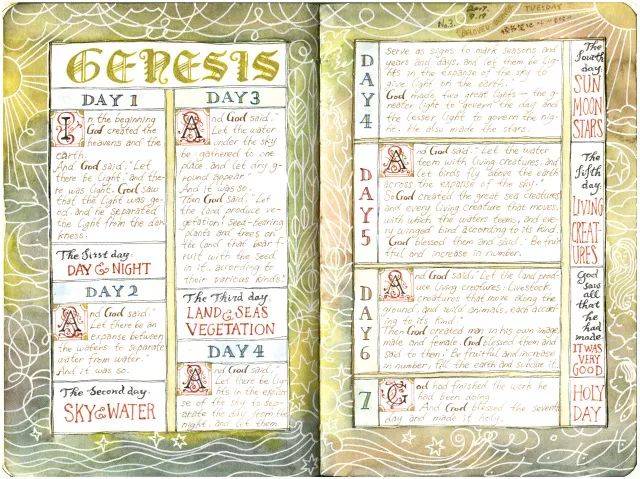 GENESIS
DAY 1
In the beginning
God created the
heavens and the
earth.
And God said, "Let
there be light," and the-
re was light. God saw
that the light was go-
od, and he separated
the light from the dar-
kness.
The first day
DAY & NIGHT
DAY 2
And God said,
Let there be an
expanse between
the waters to separate
water from water."
And it was so.
The Second day
SKY & WATER
DAY 3
And God said, "
Let the water
under the sky
be gathered to one
place, and let dry g-
round appear."
And it was so.
Then God said, "Let
the land produce ve-
getation: seed-bearing
plants and trees on
the land that bear f-
ruit with the seed
in it, according to
their various kinds."
The Third day
LAND & SEAS
VEGETATION
DAY 4
And God said, "
Let there be lig-
hts in the expan-
se of the sky to sep-
arate the day from the
night, and let them
No.3.
2017.
9.19
BELOVED TUESDAY
DAY 4
Serve as signs to mark seasons and
years and days, and let them be lig-
hts in the expanse of the sky to
give light on the earth."
God made two great lights — the g-
reater light to govern the day and
the lesser light to govern the nig-
ht. He also made the stars.
The
fourth
day
SUN
MOON
STARS
DAY 5
And God said, "Let the water
teem with living creatures, and
let birds fly above the earth
across the expanse of the sky."
So God created the great sea creatures
and every living creature that moves,
with which the waters teems, and eve-
ry winged bird according to its kind.
God blessed them and said, "Be fruit
ful and increase in number.
The
fifth
day
LIVING
CREAT-
URES
DAY 6
And God said, "Let the land prod-
uce living creatures: livestock,
creatures that move along the
ground, and wild animals, each accor-
ding to its kind."
Then God created man in his own image,
male and female. God blessed them and
said to them, "Be fruitful and increase
in number, fill the earth and subdue it.
God
saw
all
that
he
had
made
IT WAS
VERY
GOOD
7
God had finished the work he
had been doing.
And God blessed the seventh
day and made it holy.
HOLY
DAY